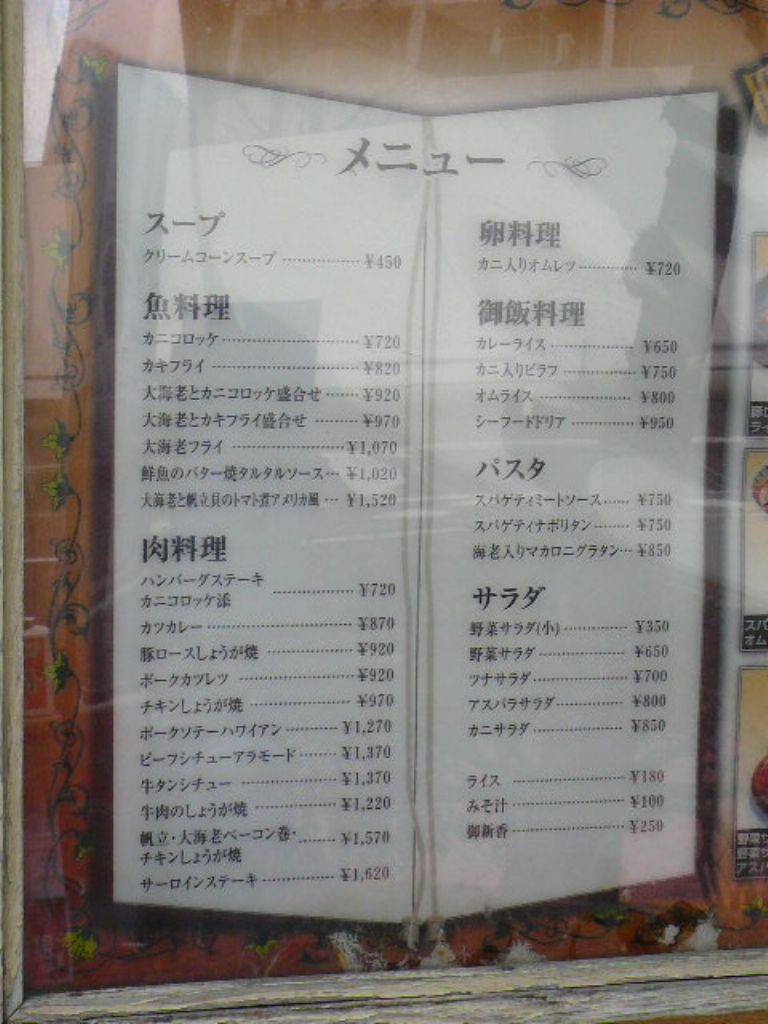 メニュー
スープ
クリームコーンスープ ¥450
魚料理
カニコロッケ ¥720
カキフライ ¥820
大海老とカニコロッケ盛合せ ¥920
大海老とカキフライ盛合せ ¥970
大海老フライ ¥1,070
鮮魚のバター焼タルタルソース ¥1,020
大海老と帆立貝のトマト煮アメリカ風 ¥1,520
肉料理
ハンバーグステーキ
カニコロッケ添 ¥720
カツカレー ¥870
豚ロースしょうが焼 ¥920
ポークカツレツ ¥920
チキンしょうが焼 ¥970
ポークソテーハワイアン ¥1,270
ビーフシチューアラモード ¥1,370
牛タンシチュー ¥1,370
牛肉のしょうが焼 ¥1,220
帆立・大海老ベーコン巻・
チキンしょうが焼 ¥1,570
サーロインステーキ ¥1,620
卵料理
カニ入りオムレツ ¥720
御飯料理
カレーライス ¥650
カニ入りピラフ ¥750
オムライス ¥800
シーフードドリア ¥950
パスタ
スパゲティミートソース ¥750
スパゲティナポリタン ¥750
海老入りマカロニグラタン ¥850
サラダ
野菜サラダ(小) ¥350
野菜サラダ ¥650
ツナサラダ ¥700
アスパラサラダ ¥800
カニサラダ ¥850
ライス ¥180
みそ汁 ¥100
御新香 ¥250
スパ
オム
野菜サ
野菜サ
アスパ